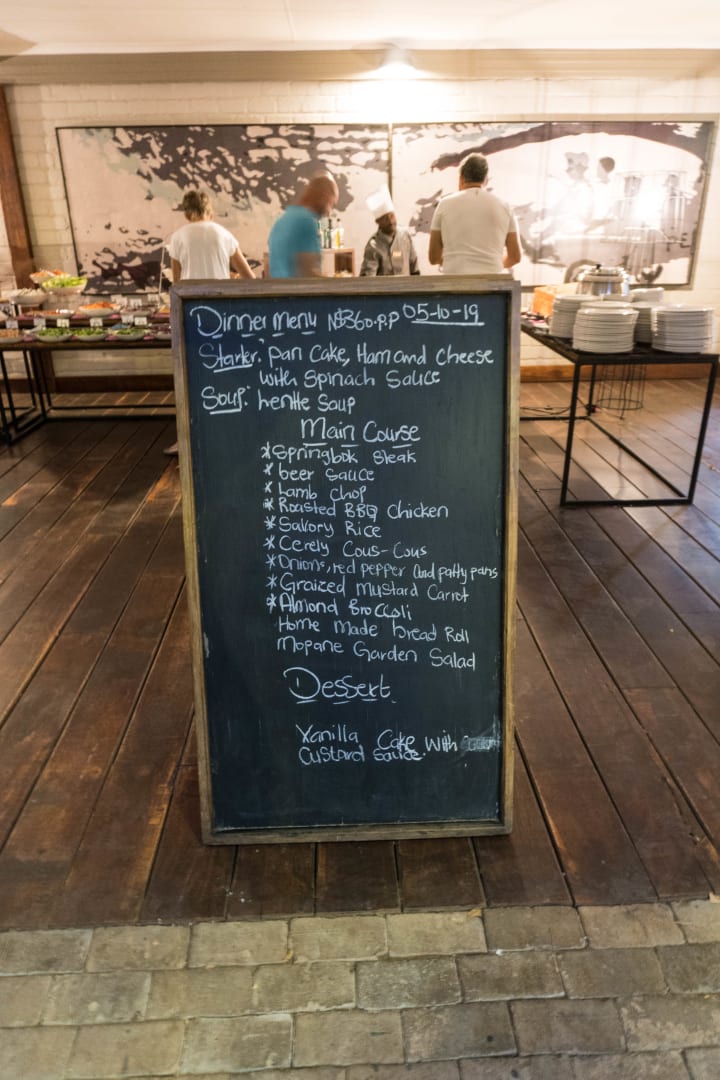 Dinner menu N$360.P.P 05-10-19
Starter: pan cake, Ham and cheese
with Spinach Sauce
Soup: lentle Soup
Main Course
* Springbok steak
* beer sauce
* Lamb chop
* Roasted BBQ Chicken
* Savory Rice
* Cerely Cous-Cous
* Onions, red pepper and patty pans
* Graized mustard Carrot
* Almond Broccoli
Home made bread Roll
Mopane Garden Salad
Dessert
Vanilla Cake with
Custard sauce.